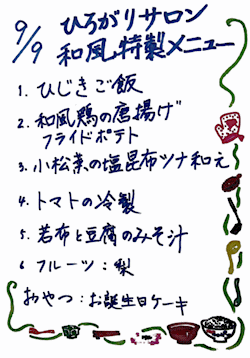 9/9 ひろがりサロン
和風特製メニュー
1. ひじきご飯
2. 和風鶏の唐揚げ
フライドポテト
3. 小松菜の塩昆布ツナ和え
4. トマトの冷製
5. 若布と豆腐のみそ汁
6 フルーツ：梨
おやつ：お誕生日ケーキ